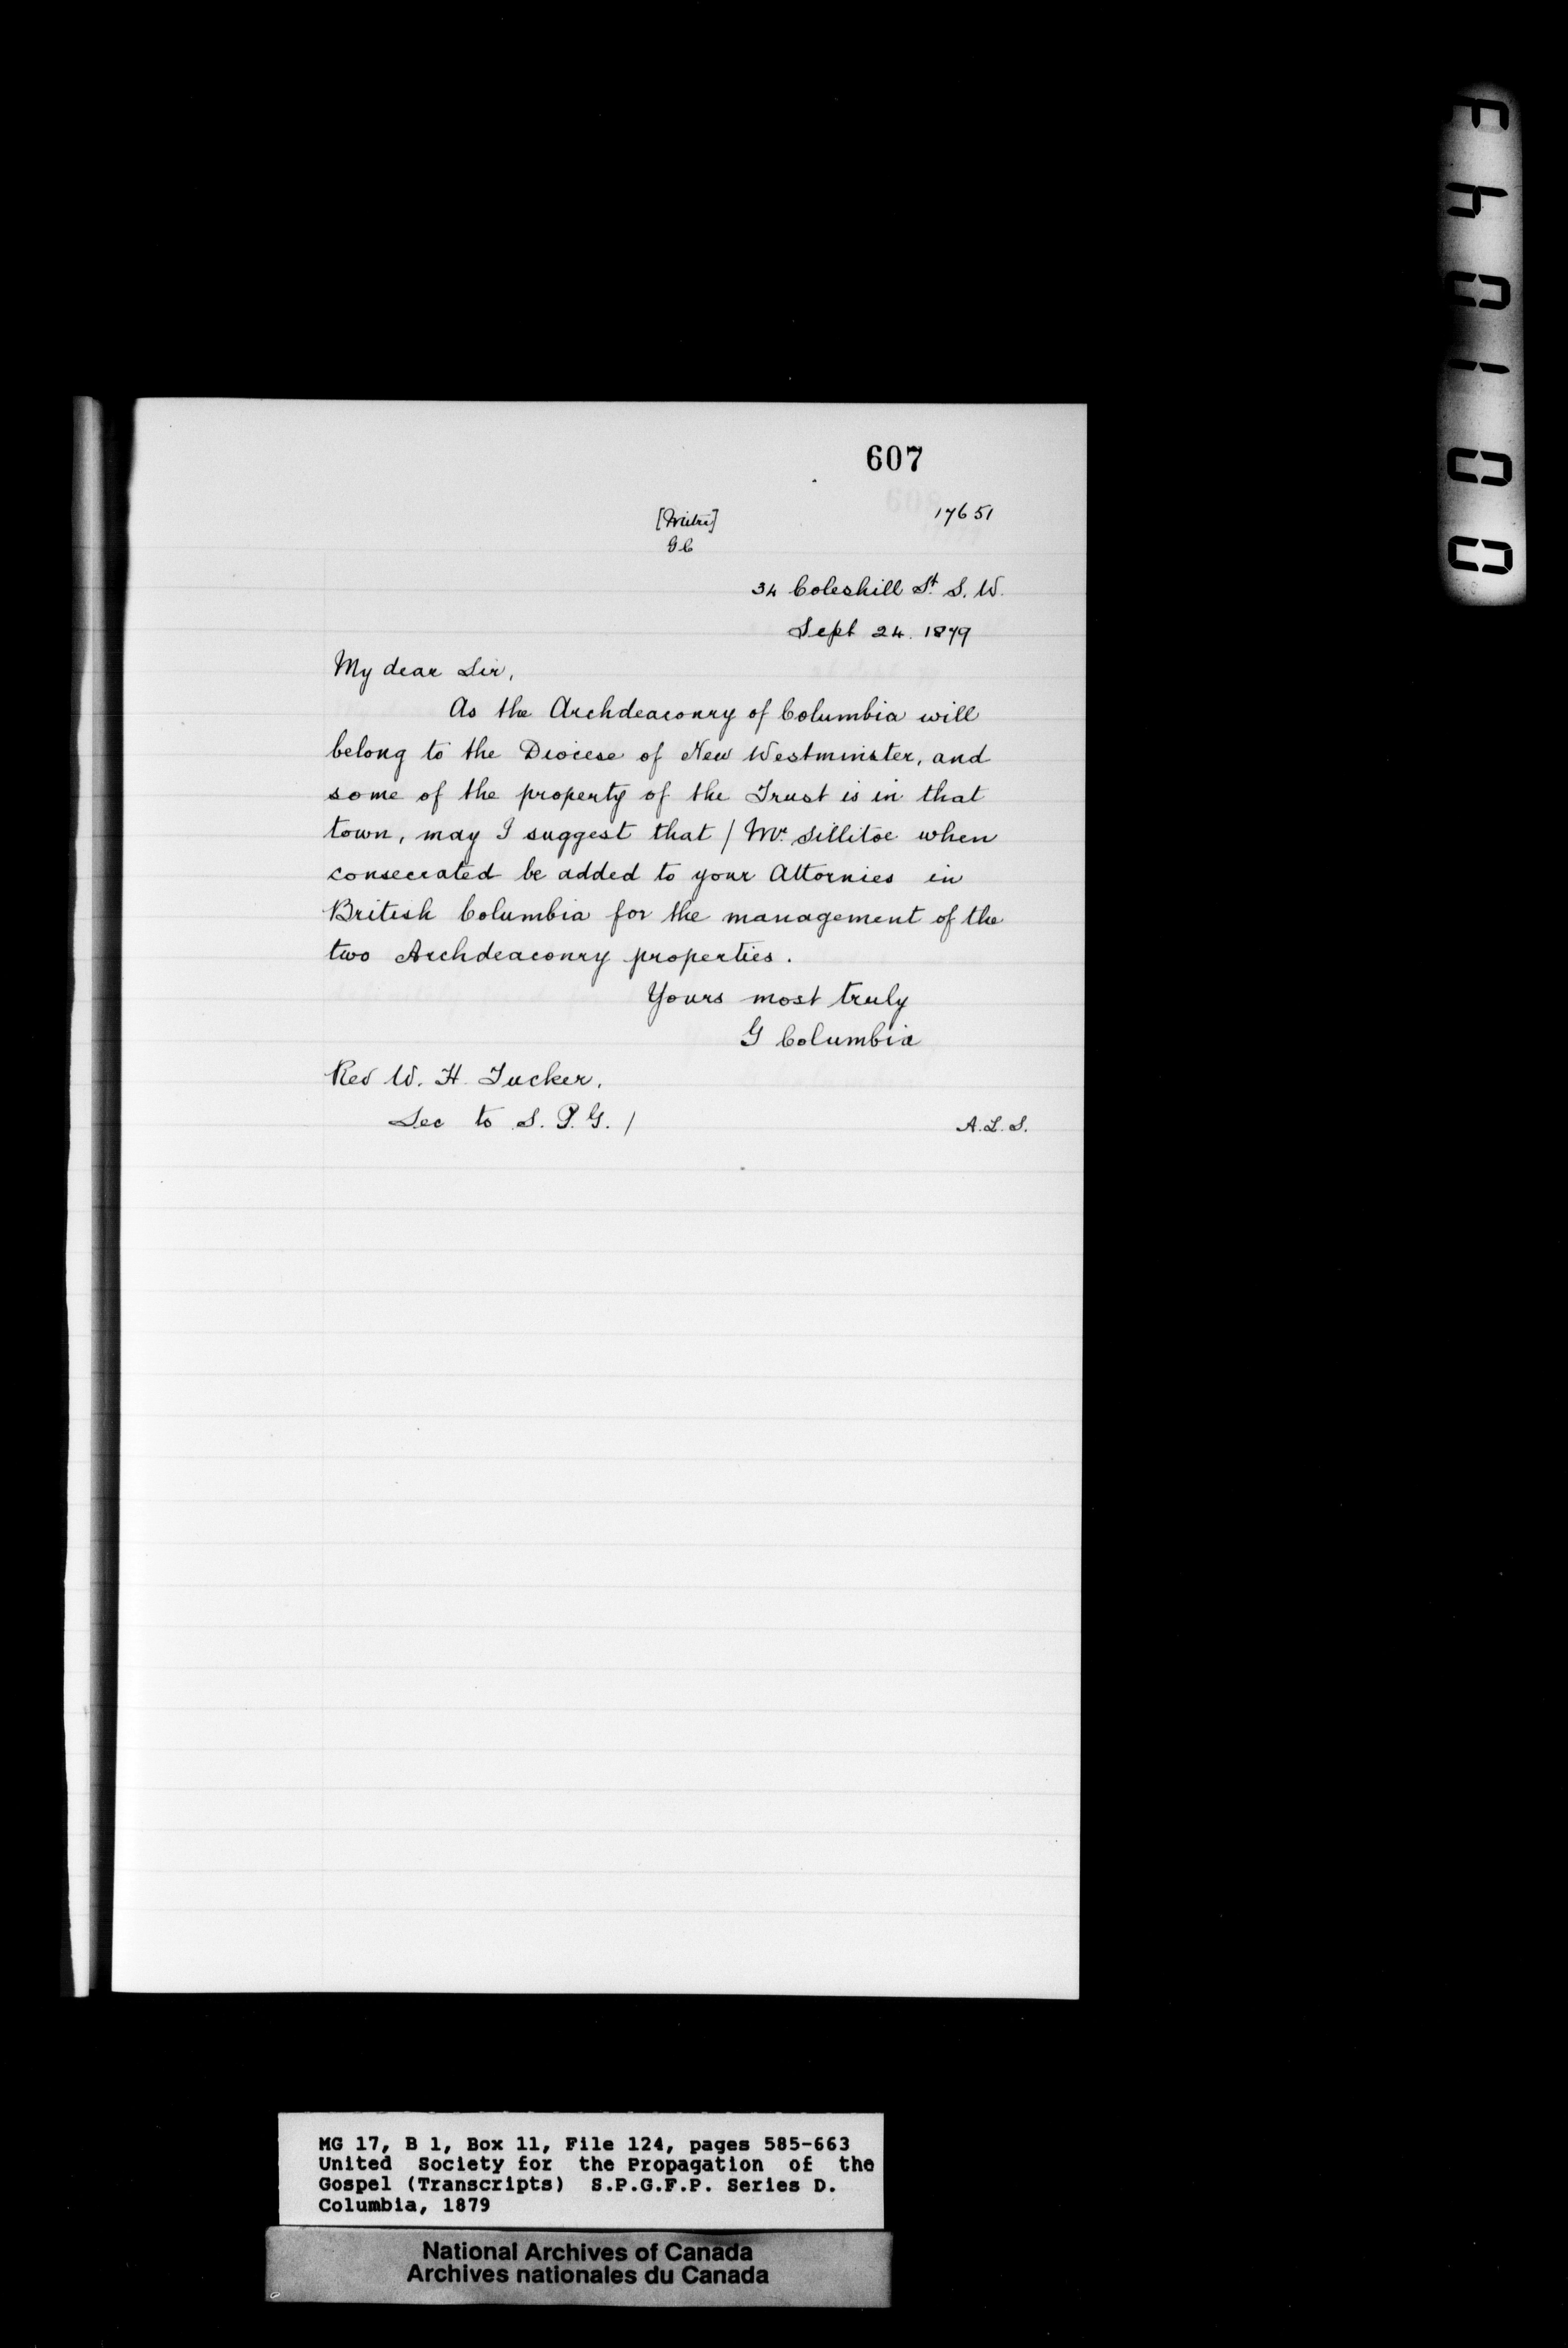 607
17651
[Mitre]
G C
34 Coleshill St. S. W.
Sept 24. 1879
My dear Sir,
As the Archdeaconry of Columbia will
belong to the Diocese of New Westminster, and
some of the property of the Trust is in that
town, may I suggest that / Mr. Sillitoe when
consecrated be added to your Attornies in
British Columbia for the management of the
two Archdeaconry properties.
Yours most truly
G Columbia
Rev W. H. Tucker.
Sec to S. P. G. /
A. L. S.
MG 17, B 1, Box 11, File 124, pages 585-663
United Society for the Propagation of the
Gospel (Transcripts) S.P.G.F.P. Series D.
Columbia, 1879
National Archives of Canada
Archives nationales du Canada